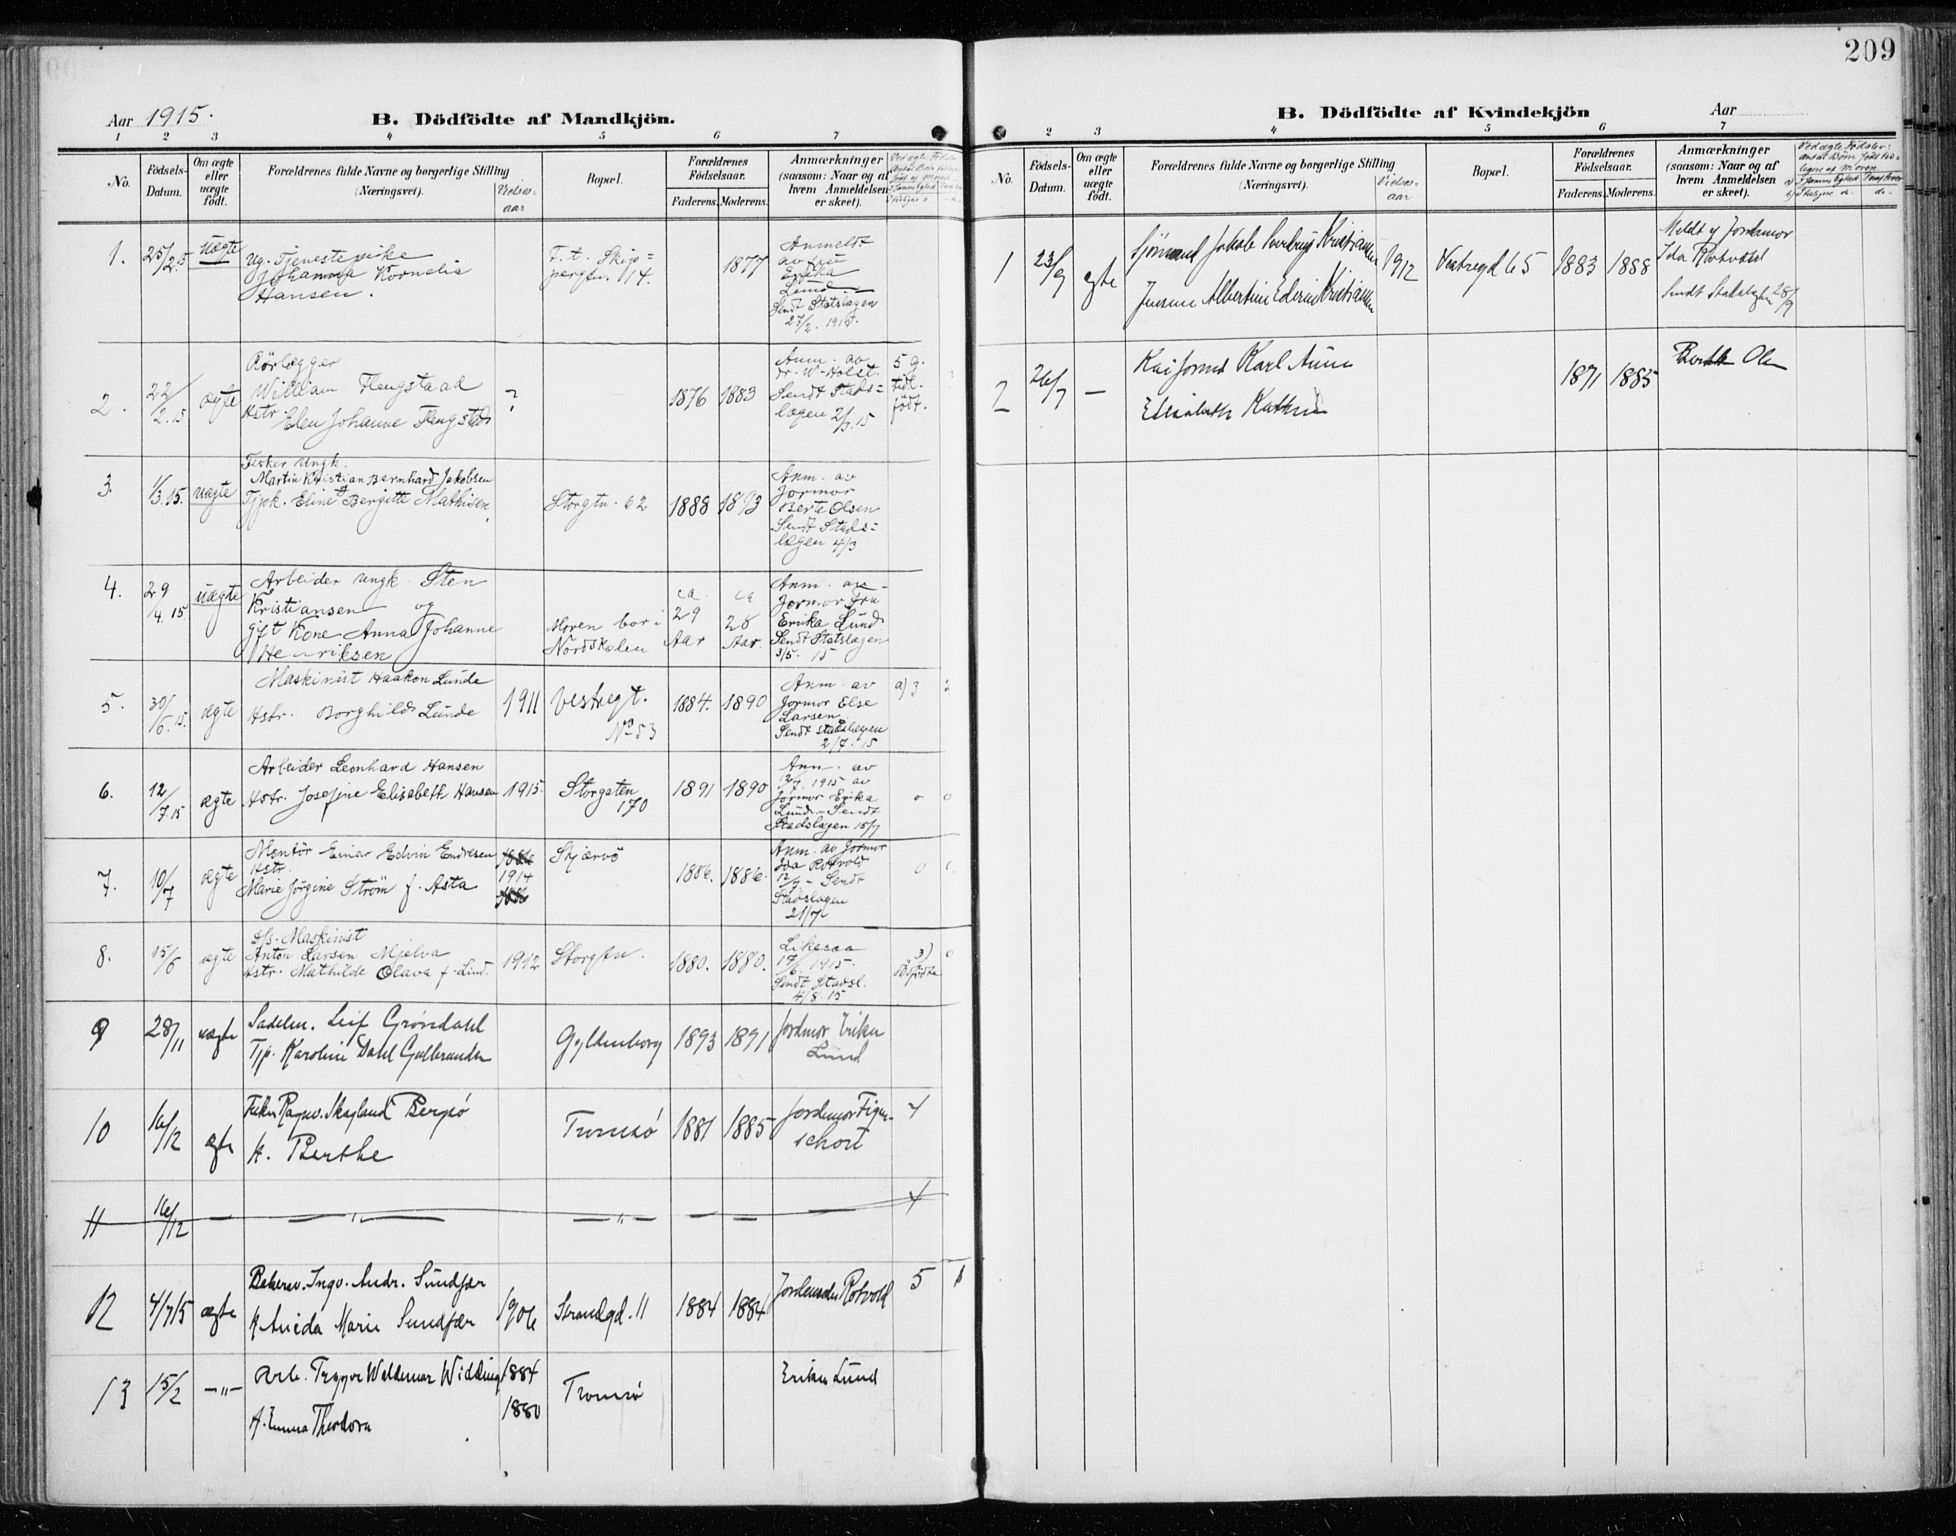 209
Aar 1915.
B. Dödfödte af Mandkjön.
1 2 3 4 5 6 7
No.
Födsels-
Datum.
Om ægte
eller
uægte
födt.
Forældrenes fulde Navne og borgerlige Stilling
(Næringsvei).
Vielses-
aar
Bopæl.
Forældrenes
Födselsaar.
Faderens. Moderens.
Anmærkninger
(saasom: Naar og af
hvem Anmeldelsen
er skeet).
1. 25/2 15 uægte
Ug. Tjenestepike
Johanna Kornelia
Hansen.
F. t. Skip=
pergtn. 14.
1877
Anmeldt
av fru
Erika
Lund
Sendt Statslægen
27/2. 1915.
2. 22/2.15 ægte
Rørlægger
William Flengstad
Hstr
Elen Johanne Flengstad
?
1876 1883
Anm. av
dr. W. Holst.
Sendt Stads=
lægen 2/3.15
5 g.
tidl.
født.
3. 1/3.15. uægte
Fisker ungk.
Martin Kristian Bernhard Jakobsen
Tjpk. Eline Bergitte Mathisen
Storgtn. 62
1888 1893
Anm. av
Jormor
Berte Olsen
Sendt Stads=
lægen 4/3
4. 29/4.15 uægte
Arbeider ungk. Sten
Kristiansen og
gift Kone Anna Johanne
Henriksen
Moren bor i
Nordskalen
ca. 29 Aar
ca 28 Aar.
Anm. av
Jormor Fru
Erika Lund
Sendt Statslægen
3/5. 15
5. 30/6.15. ægte
Maskinist Haakon Lunde
Hstr. Borghild Lunde
1911
Vestregt.
No 53
1884. 1890
Anm. av
Jormor Else
Larsen
Sendt stadslægen
2/7.15
a) 3
6. 12/7 15 ægte
Arbeider Leonhard Hansen
Hstr. Josefine Elisabeth Hansen
1915.
Storgaten
170
1891 1890
Anm. av
12/7. 1915 av
Jormor Erika
Lund - Sendt
Stadslægen 15/7
0 0
7. 10/7 ægte
Montör Einar Edvin Endresen
Hstr.
Marie Jörgine Ström f. Asta
1914
Skjærvö
1886. 1886.
Anm. av Jormor
Ida Rotvold
12/7 - Sendt
Stadslægen
21/7
0 0
8. 15/6 ægte
d/s. Maskinist
Anton Larsen Mjelva
Hstr. Mathilde Olava f. Lind.
1912 Storgtn.
1880. 1880.
Likesaa
17/6. 1915.
Sendt Stadsl.
4/8. 15
0
9 28/11 uægte
Sadelm. Leif Grøndahl
Tjp. Karoline Dahl Gulbransen
Gyldenborg
1893 1891
Jordmor Erika
Lund
10 16/12 ægte
Fisker Ragnv. Skogland Bergsö
H. Berthe
Tromsö
1881 1885
Jordmor Figen-
schou
4
11 16/12 — — " — — " — — — — 4
12 4/7 15 ægte
Bakersv. Ingv. Andr. Sundfær
H Anida Marie Sundfær
1906
Strandgd. 11
1884 1884
Jordmoder Rotvold
5
13 15/2 —"—
Arb. Trygve Waldemar Widding
H. Emma Theodora
1884
1880
Tromsö
Erika Lund
B. Dödfödte af Kvindekjön
Aar
2 3 4 5 6 7
No.
Födsels-
Datum.
Om ægte
eller
uægte
födt.
Forældrenes fulde Navne og borgerlige Stilling
(Næringsvei).
Vielses-
aar
Bopæl.
Forældrenes
Födselsaar.
Faderens. Moderens.
Anmærkninger
(saasom: Naar og af
hvem Anmeldelsen
er skeet).
1 23/9 ægte
Sjömand Jakob Kristiansen
Albertine Kristiansen
1912
Vestregd 65
1883 1888
Meldt af Jordmor
Ida Rotvold
Sendt Stadslægen 28/9
2 26/7 —
Karl
Elisabeth
1871 1885